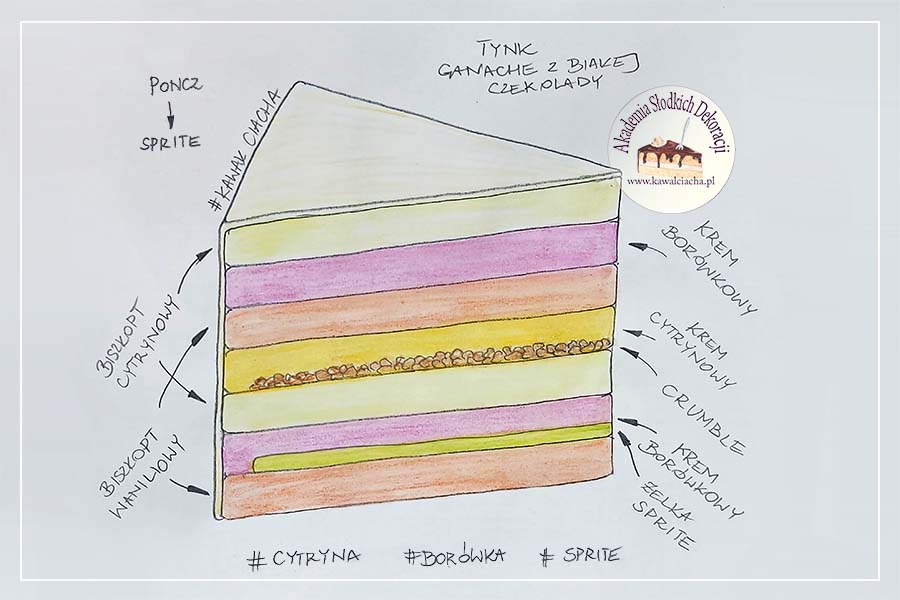 TYNK
GANACHE Z BIAŁEJ
CZEKOLADY
PONCZ
SPRITE
#KAWAŁ CIACHA
Akademia Słodkich Dekoracji
www.kawalciacha.pl
BISZKOPT
CYTRYNOWY
BISZKOPT
WANILIOWY
KREM
BORÓWKOWY
KREM
CYTRYNOWY
CRUMBLE
KREM
BORÓWKOWY
ŻELKA
SPRITE
# CYTRYNA #BORÓWKA # SPRITE